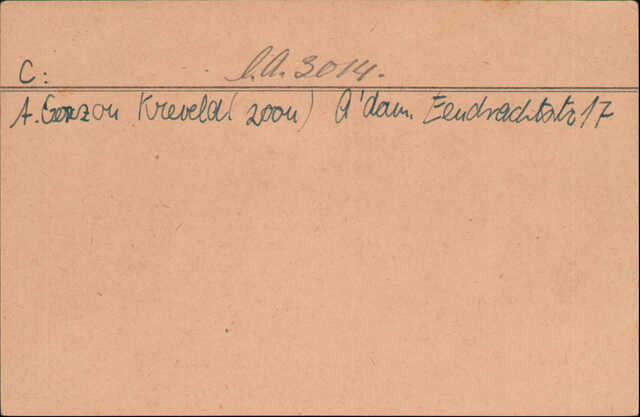 C: l.A. 3014.
A. Gerzon Kreveld (zoon) A'dam. Eendrachtstr 17